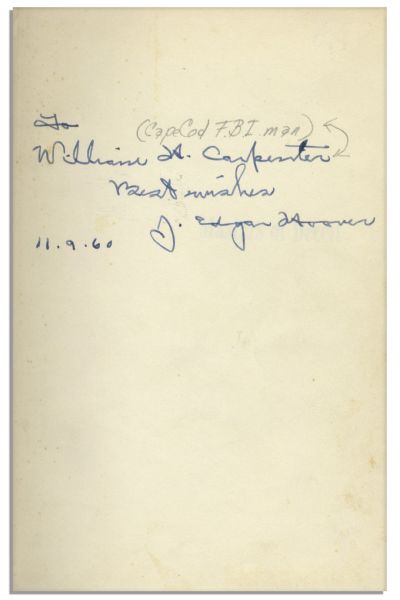 To
(Cape Cod F.B.I. man)
William H. Carpenter
Best wishes
J. Edgar Hoover
11.9.60